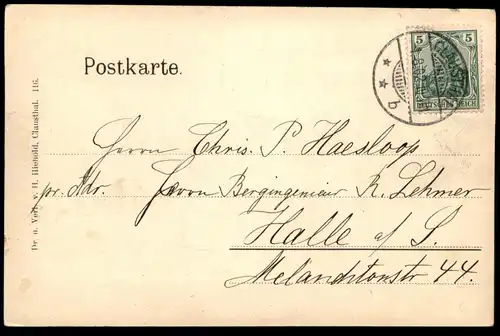 Postkarte.
5 5
DEUTSCHES REICH
CLAUSTHAL
b
Herrn Chris. P. Haesloop
pr. Adr. Herrn Bergingenieur R. Lehmer
Halle a/S.
Melanchtonstr 44.
Dr. u. Verl. v. H. Hiehold, Clausthal. 116.